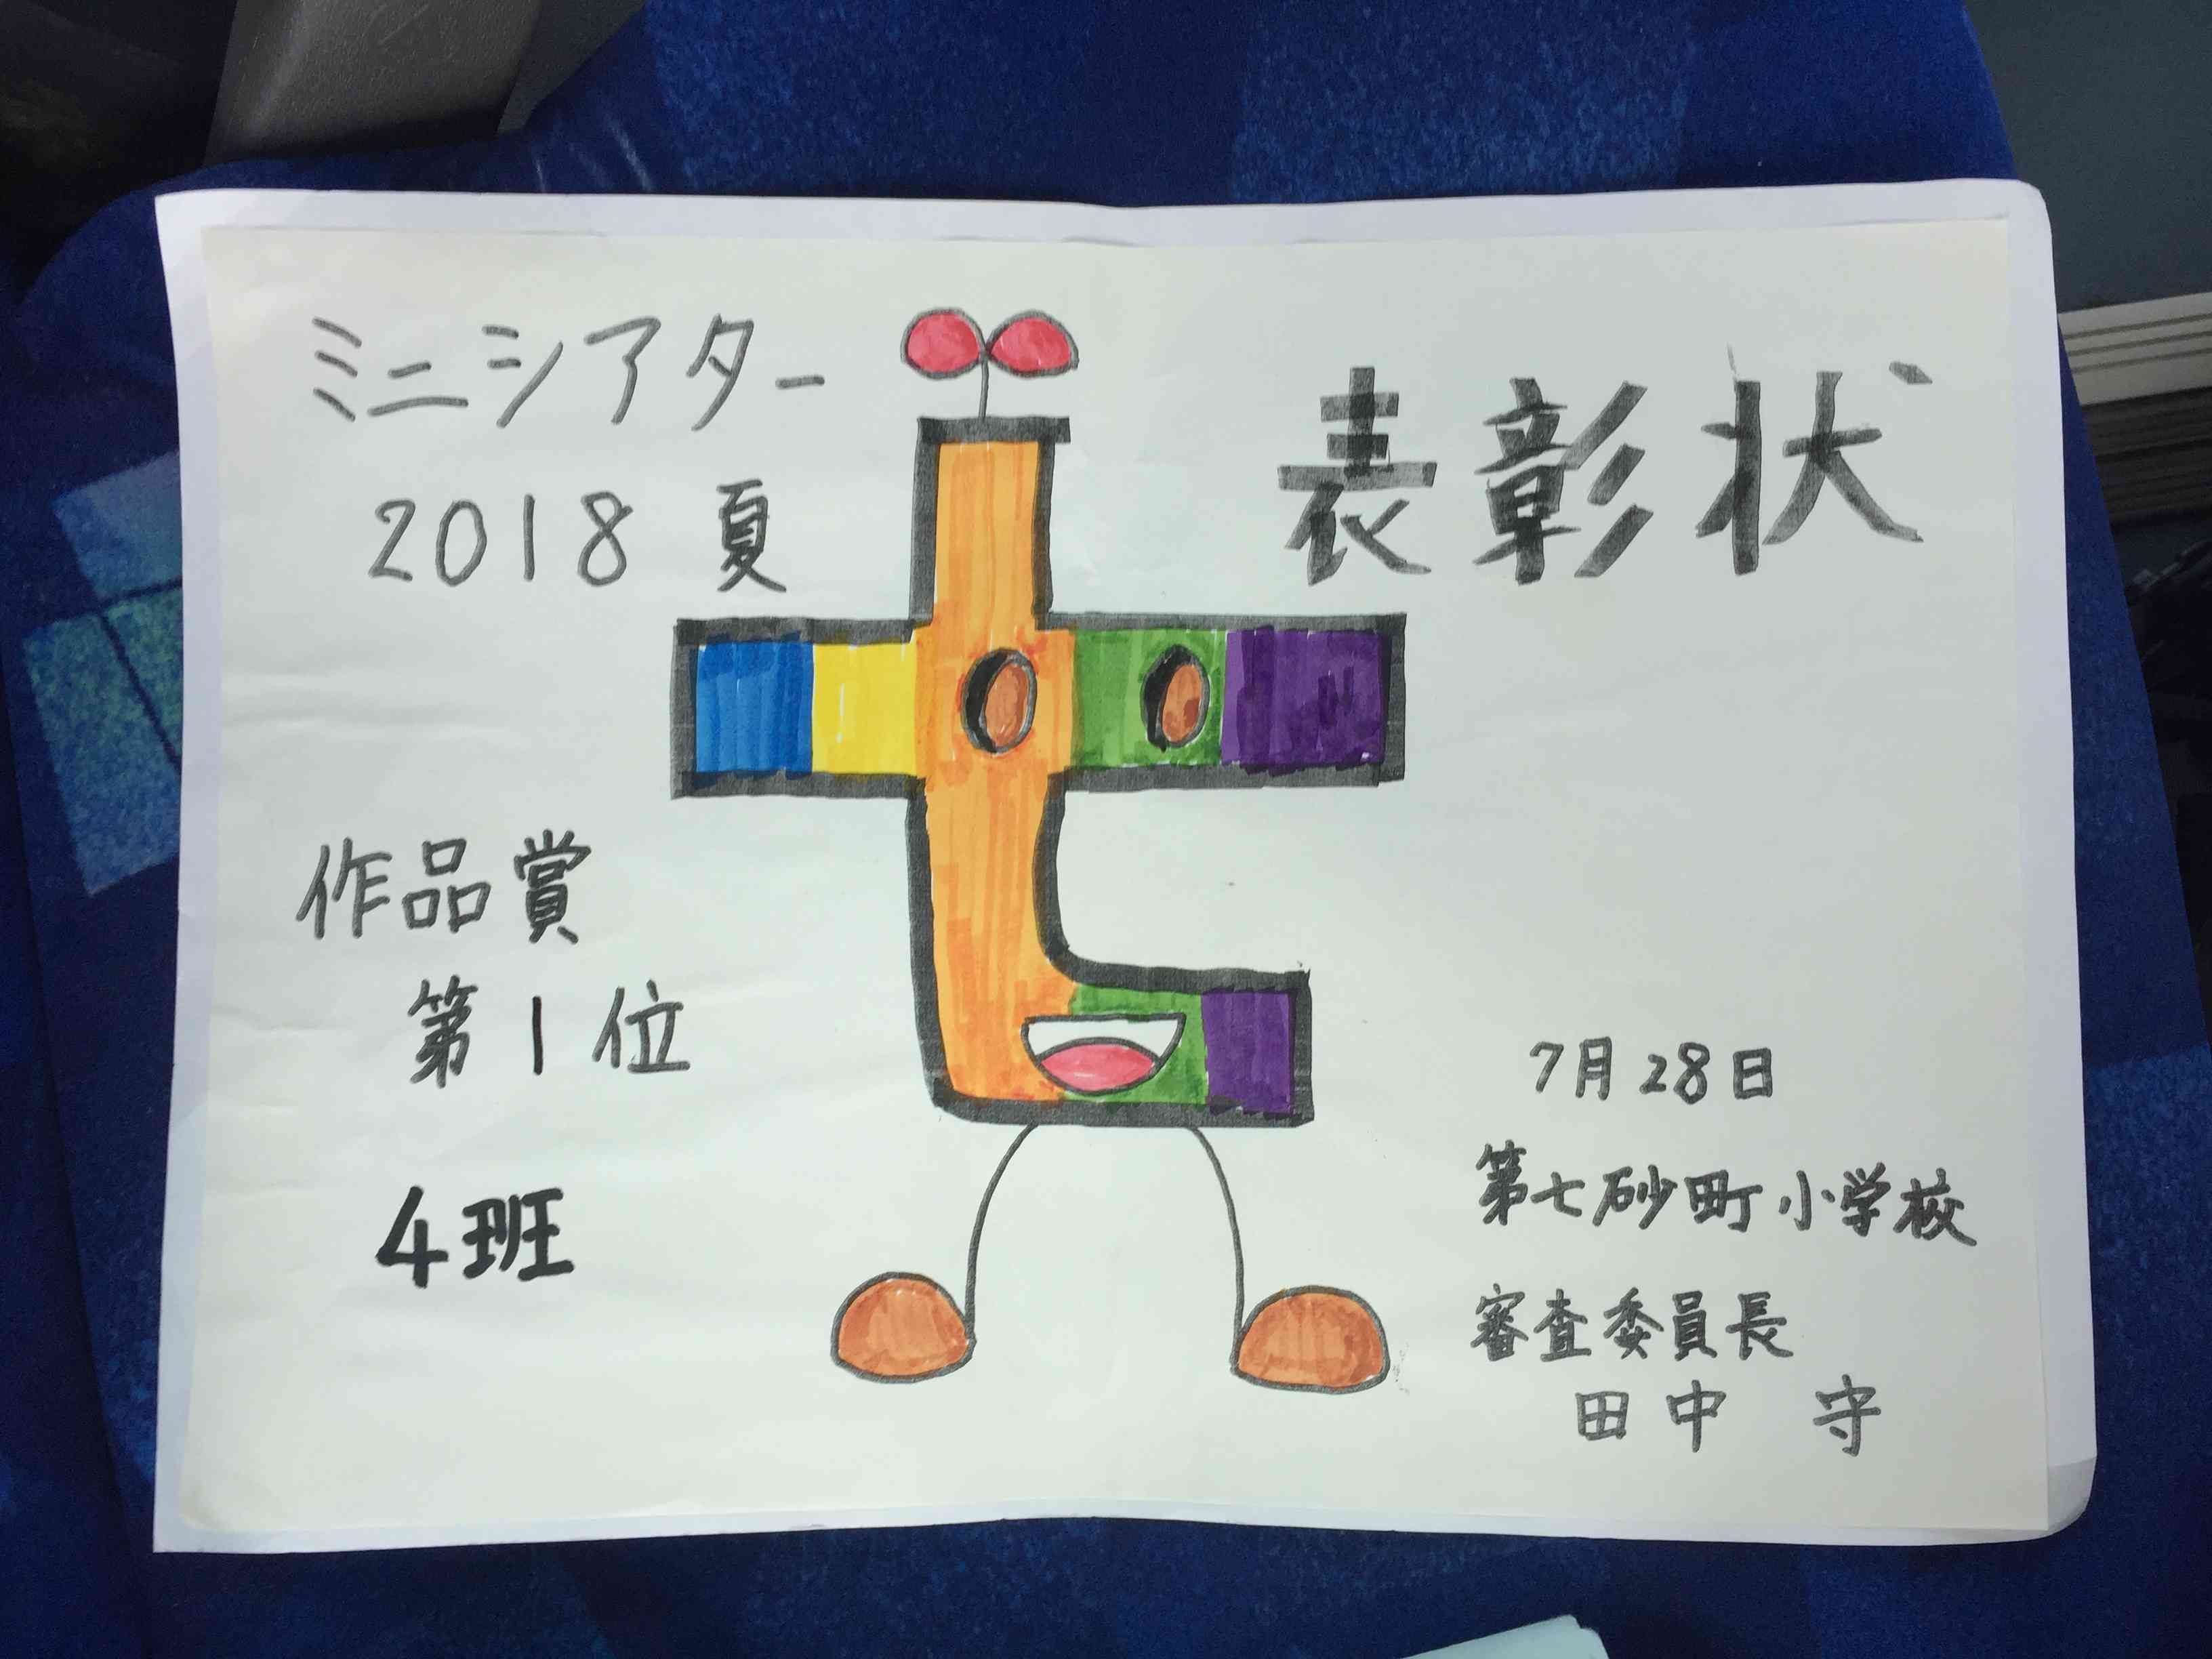 表彰状
ミニシアター
2018 夏
作品賞
第1位
4班
7月28日
第七砂町小学校
審査委員長
田中 守